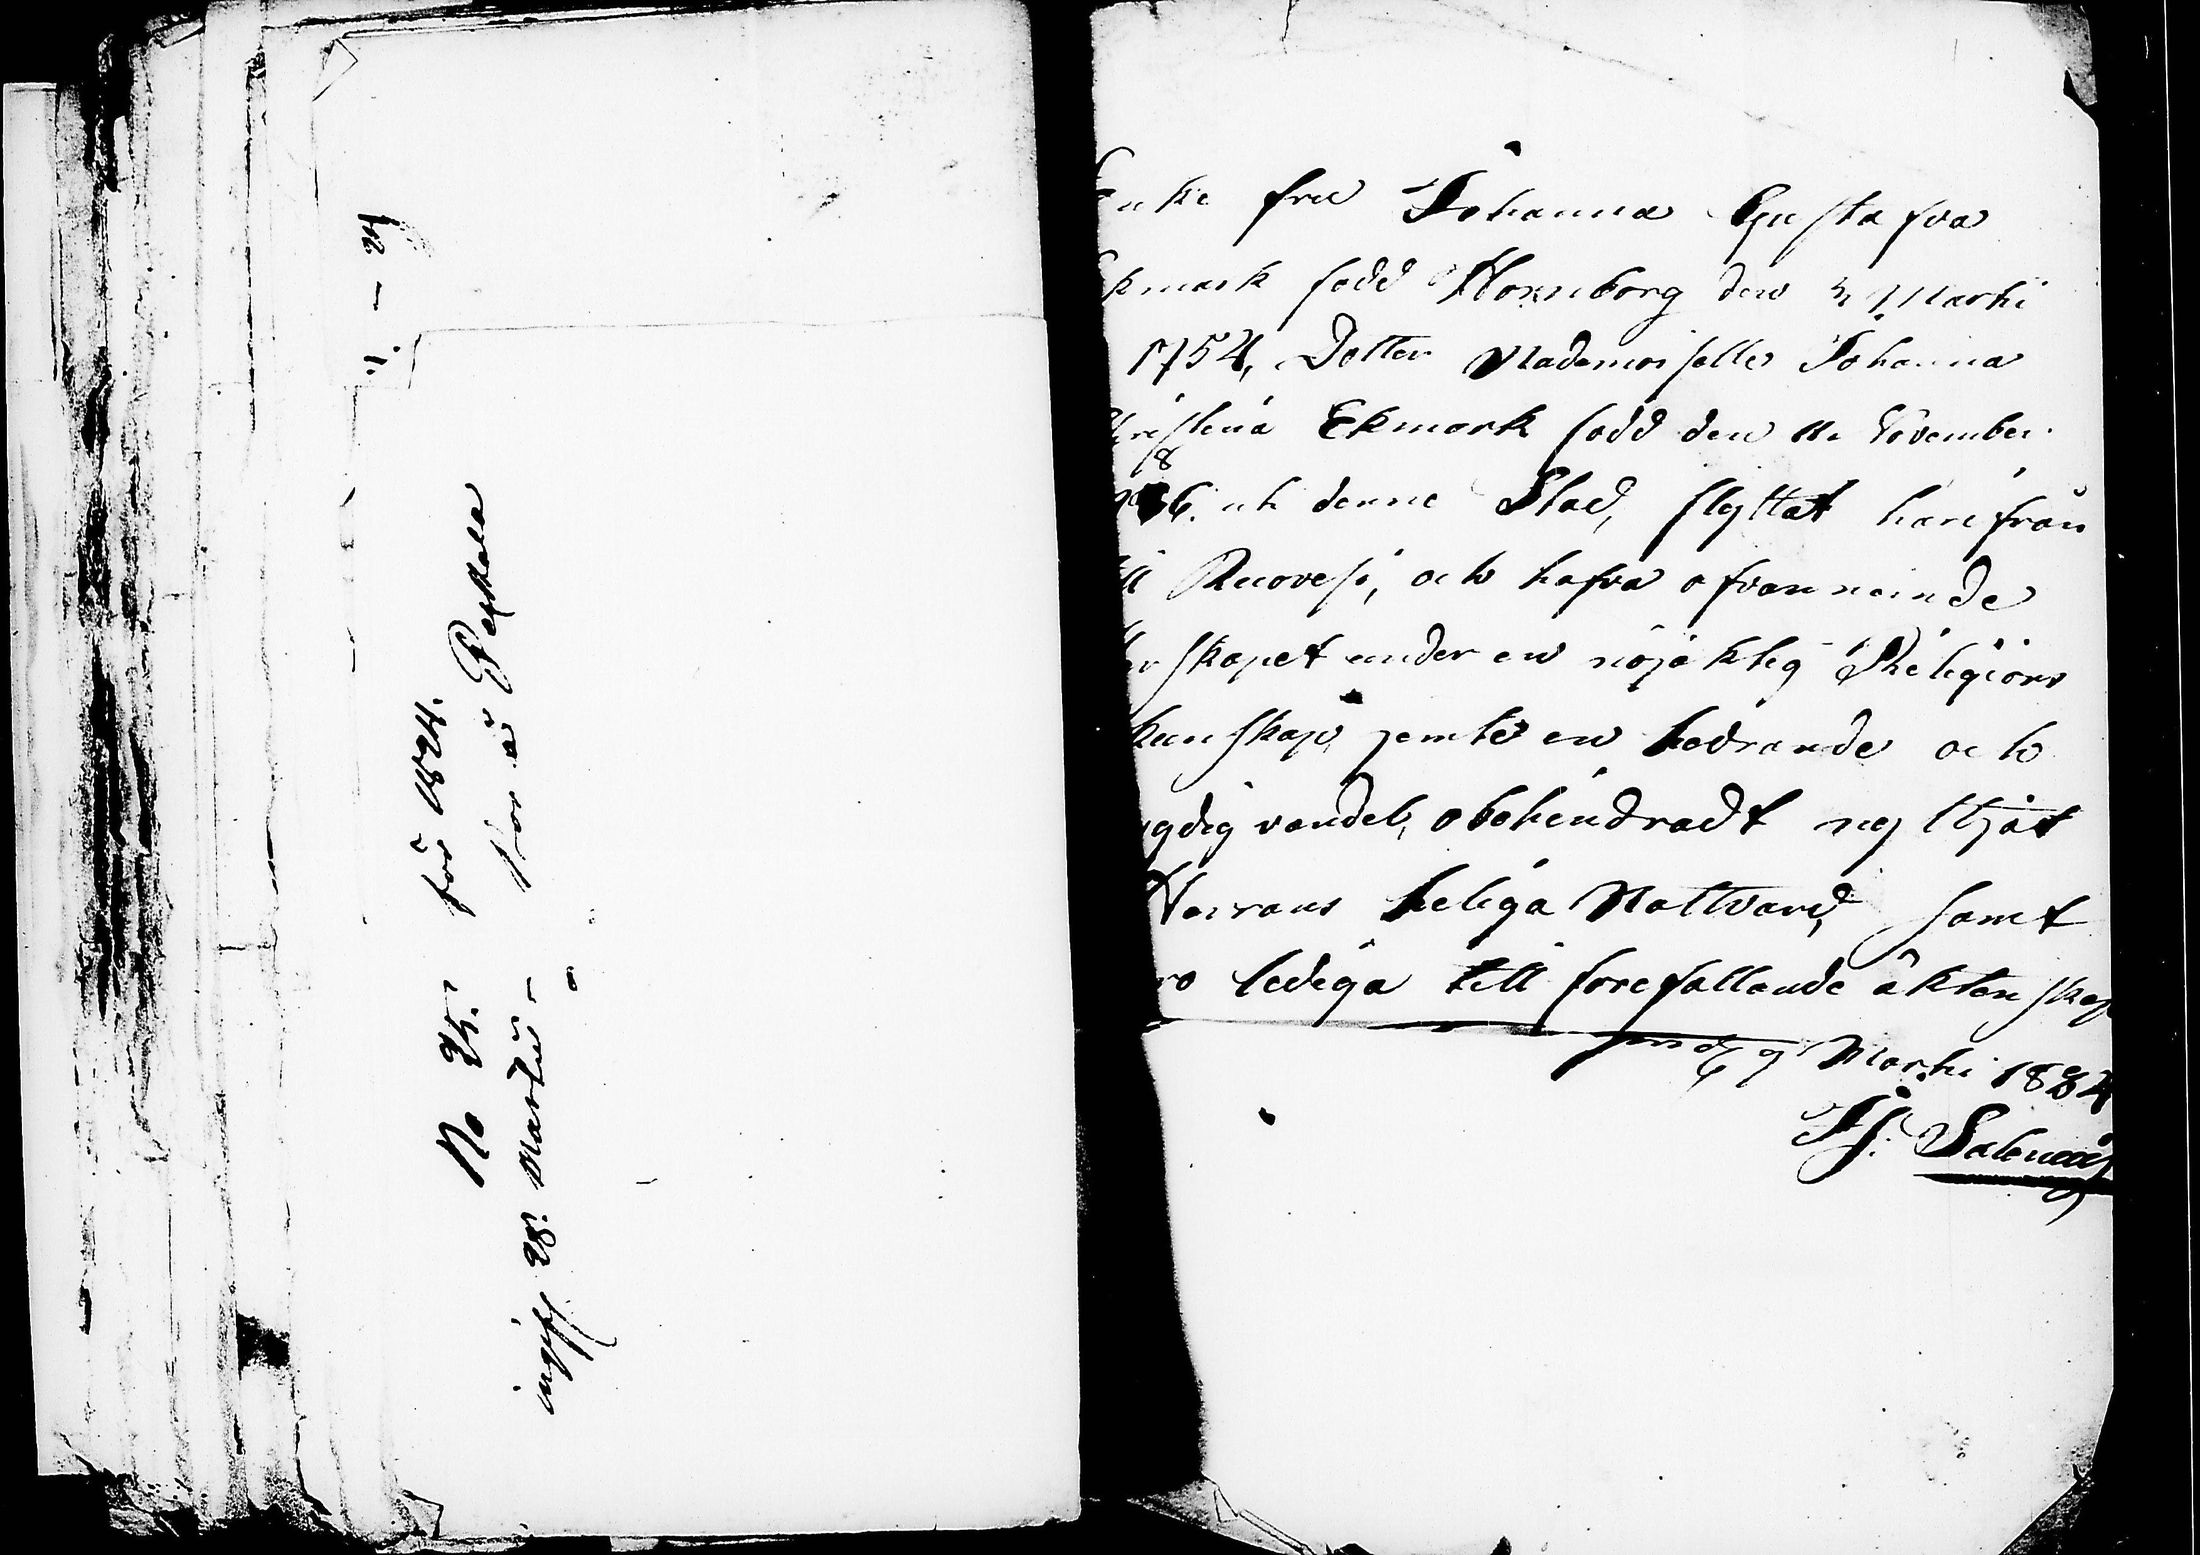 1. – 24
No 25. för 1824.
ingiff 28. Martii –
bor å Pekkala
Enke fru Johanna Gustafva
Ekmark född Hornborg den 5 Martii
1754, Dotter Mademoiselle Johanna
Christina Ekmark född den 11 November
86. uti denne Stad, flyttat härifrån
till Ruovesi, och hafva ofvannämnde
skapet under en nöjaktig Religions
kunskap, jemte en hedrande och
ygdig vandel, obehindradt nyttjat
Herrans heliga Nattvard, samt
äro lediga till förefallande äktenskap
9 Martii 1824